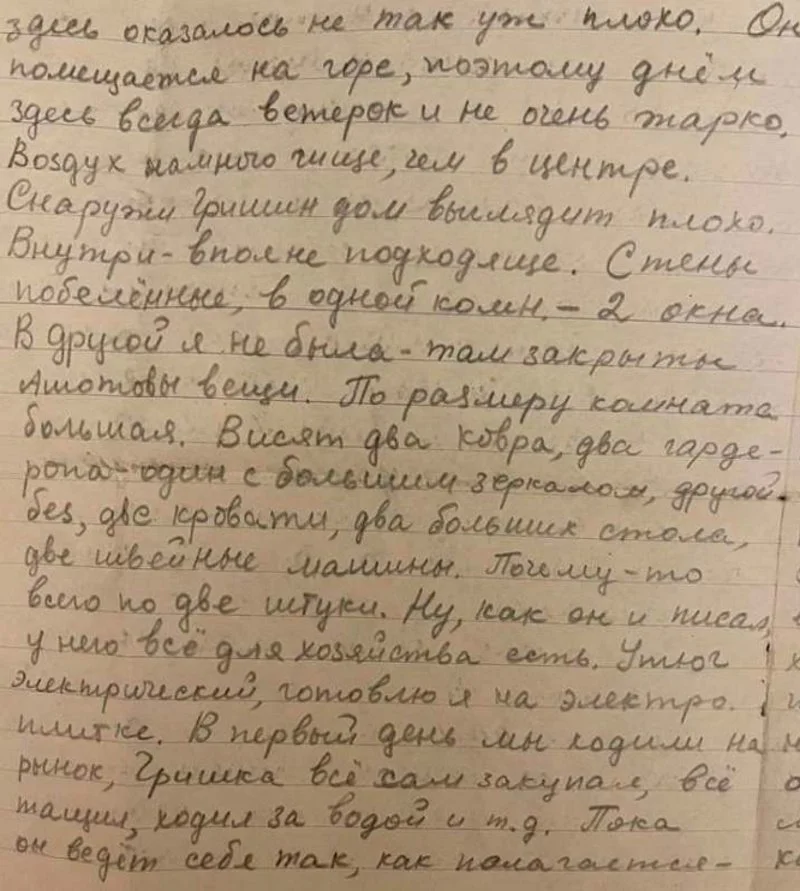 здесь оказалось не так уж плохо. Он
помещается на горе, поэтому днём
здесь всегда ветерок и не очень жарко.
Воздух намного чище, чем в центре.
Снаружи Гришин дом выглядит плохо.
Внутри - вполне подходяще. Стены
побелённые, в одной комн. - 2 окна.
В другой я не была - там закрыты
Ашотовы вещи. По размеру комната
большая. Висят два ковра, два гарде-
ропа - один с большим зеркалом, другой
без, две кровати, два больших стола,
две швейные машины. Почему-то
всего по две штуки. Ну, как он и писал,
у него всё для хозяйства есть. Утюг
электрический, готовлю я на электро.
плитке. В первый день мы ходили на
рынок, Гришка всё сам закупал, всё
тащил, ходил за водой и т.д. Пока
он ведёт себя так, как полагается -